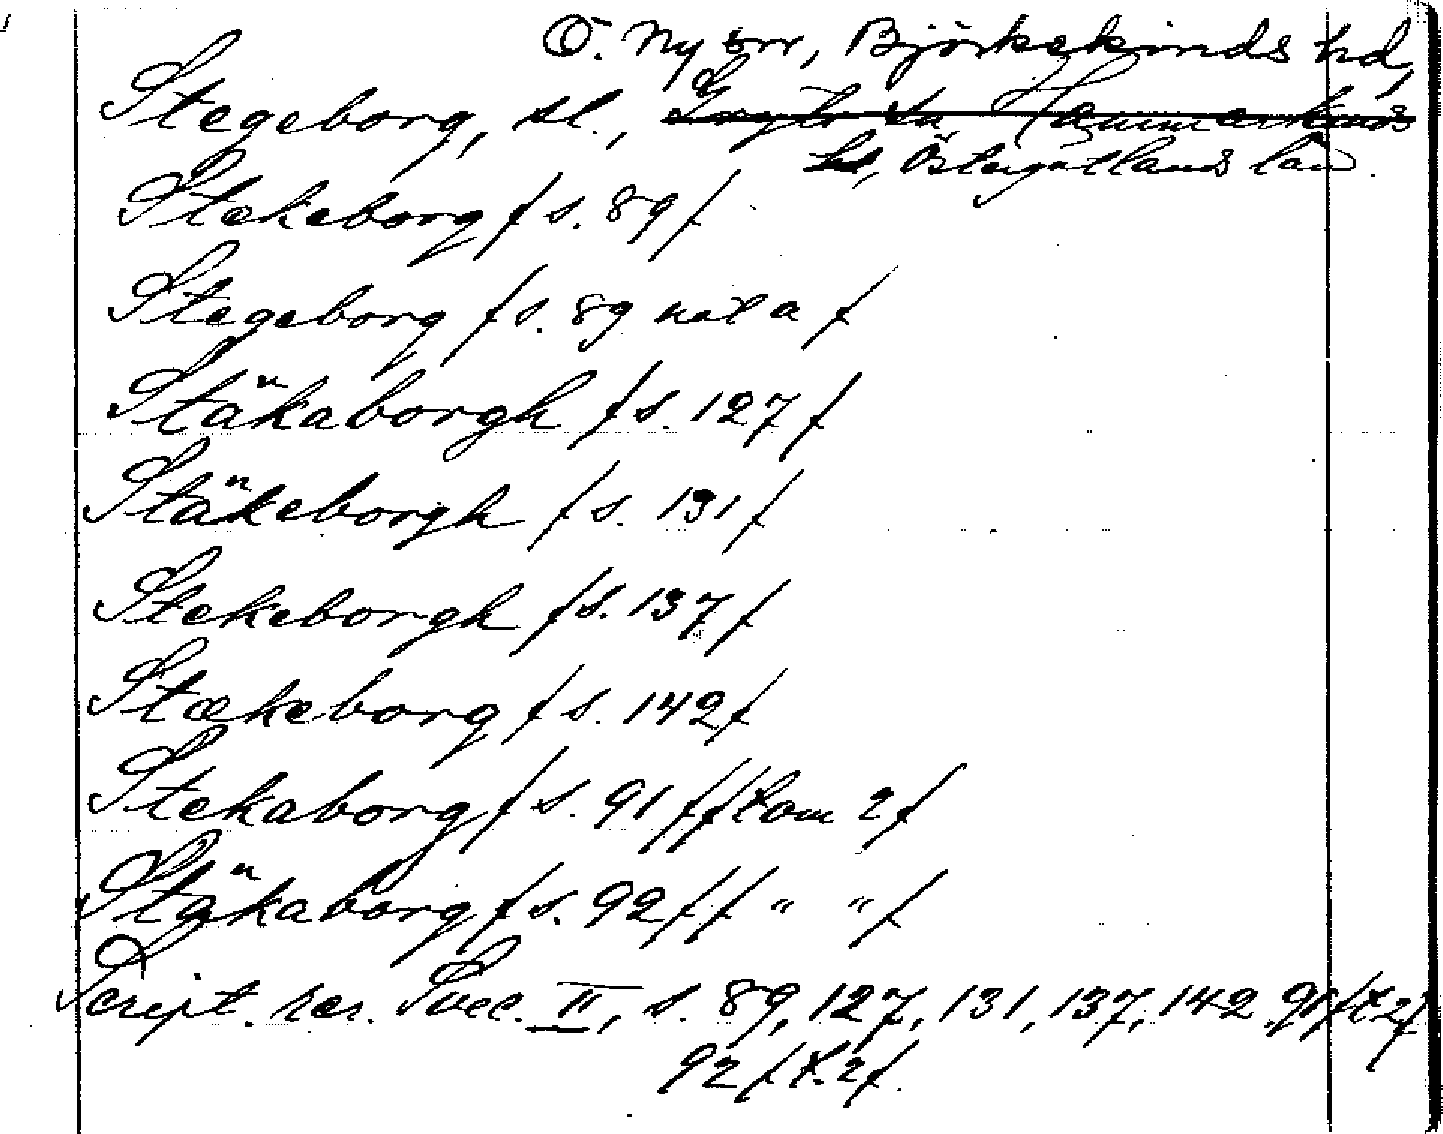 Ö. Ny sn, Björkekinds hd,
Stegeborg, sl., Hammarkinds
hd, Östergötlands län.
Stekeborg / s. 89 /
Stegeborg / s. 89 not a /
Stäkaborgh / s. 127 /
Stäkeborgh / s. 131 /
Stekeborgh / s. 137 /
Stækeborg / s. 142 /
Stekaborg / s. 91 / / tom 2 /
Stäkaborg / s. 92 / / " " /
Script. rer. Svec. II, s. 89, 127, 131, 137, 142 91 / t. 2 /
92 / t. 2 /.